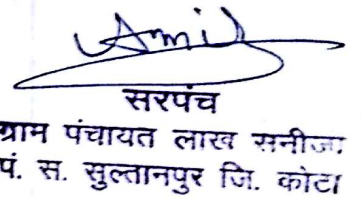 Amil
सरपंच
ग्राम पंचायत लाख सनीजा
पं. स. सुल्तानपुर जि. कोटा